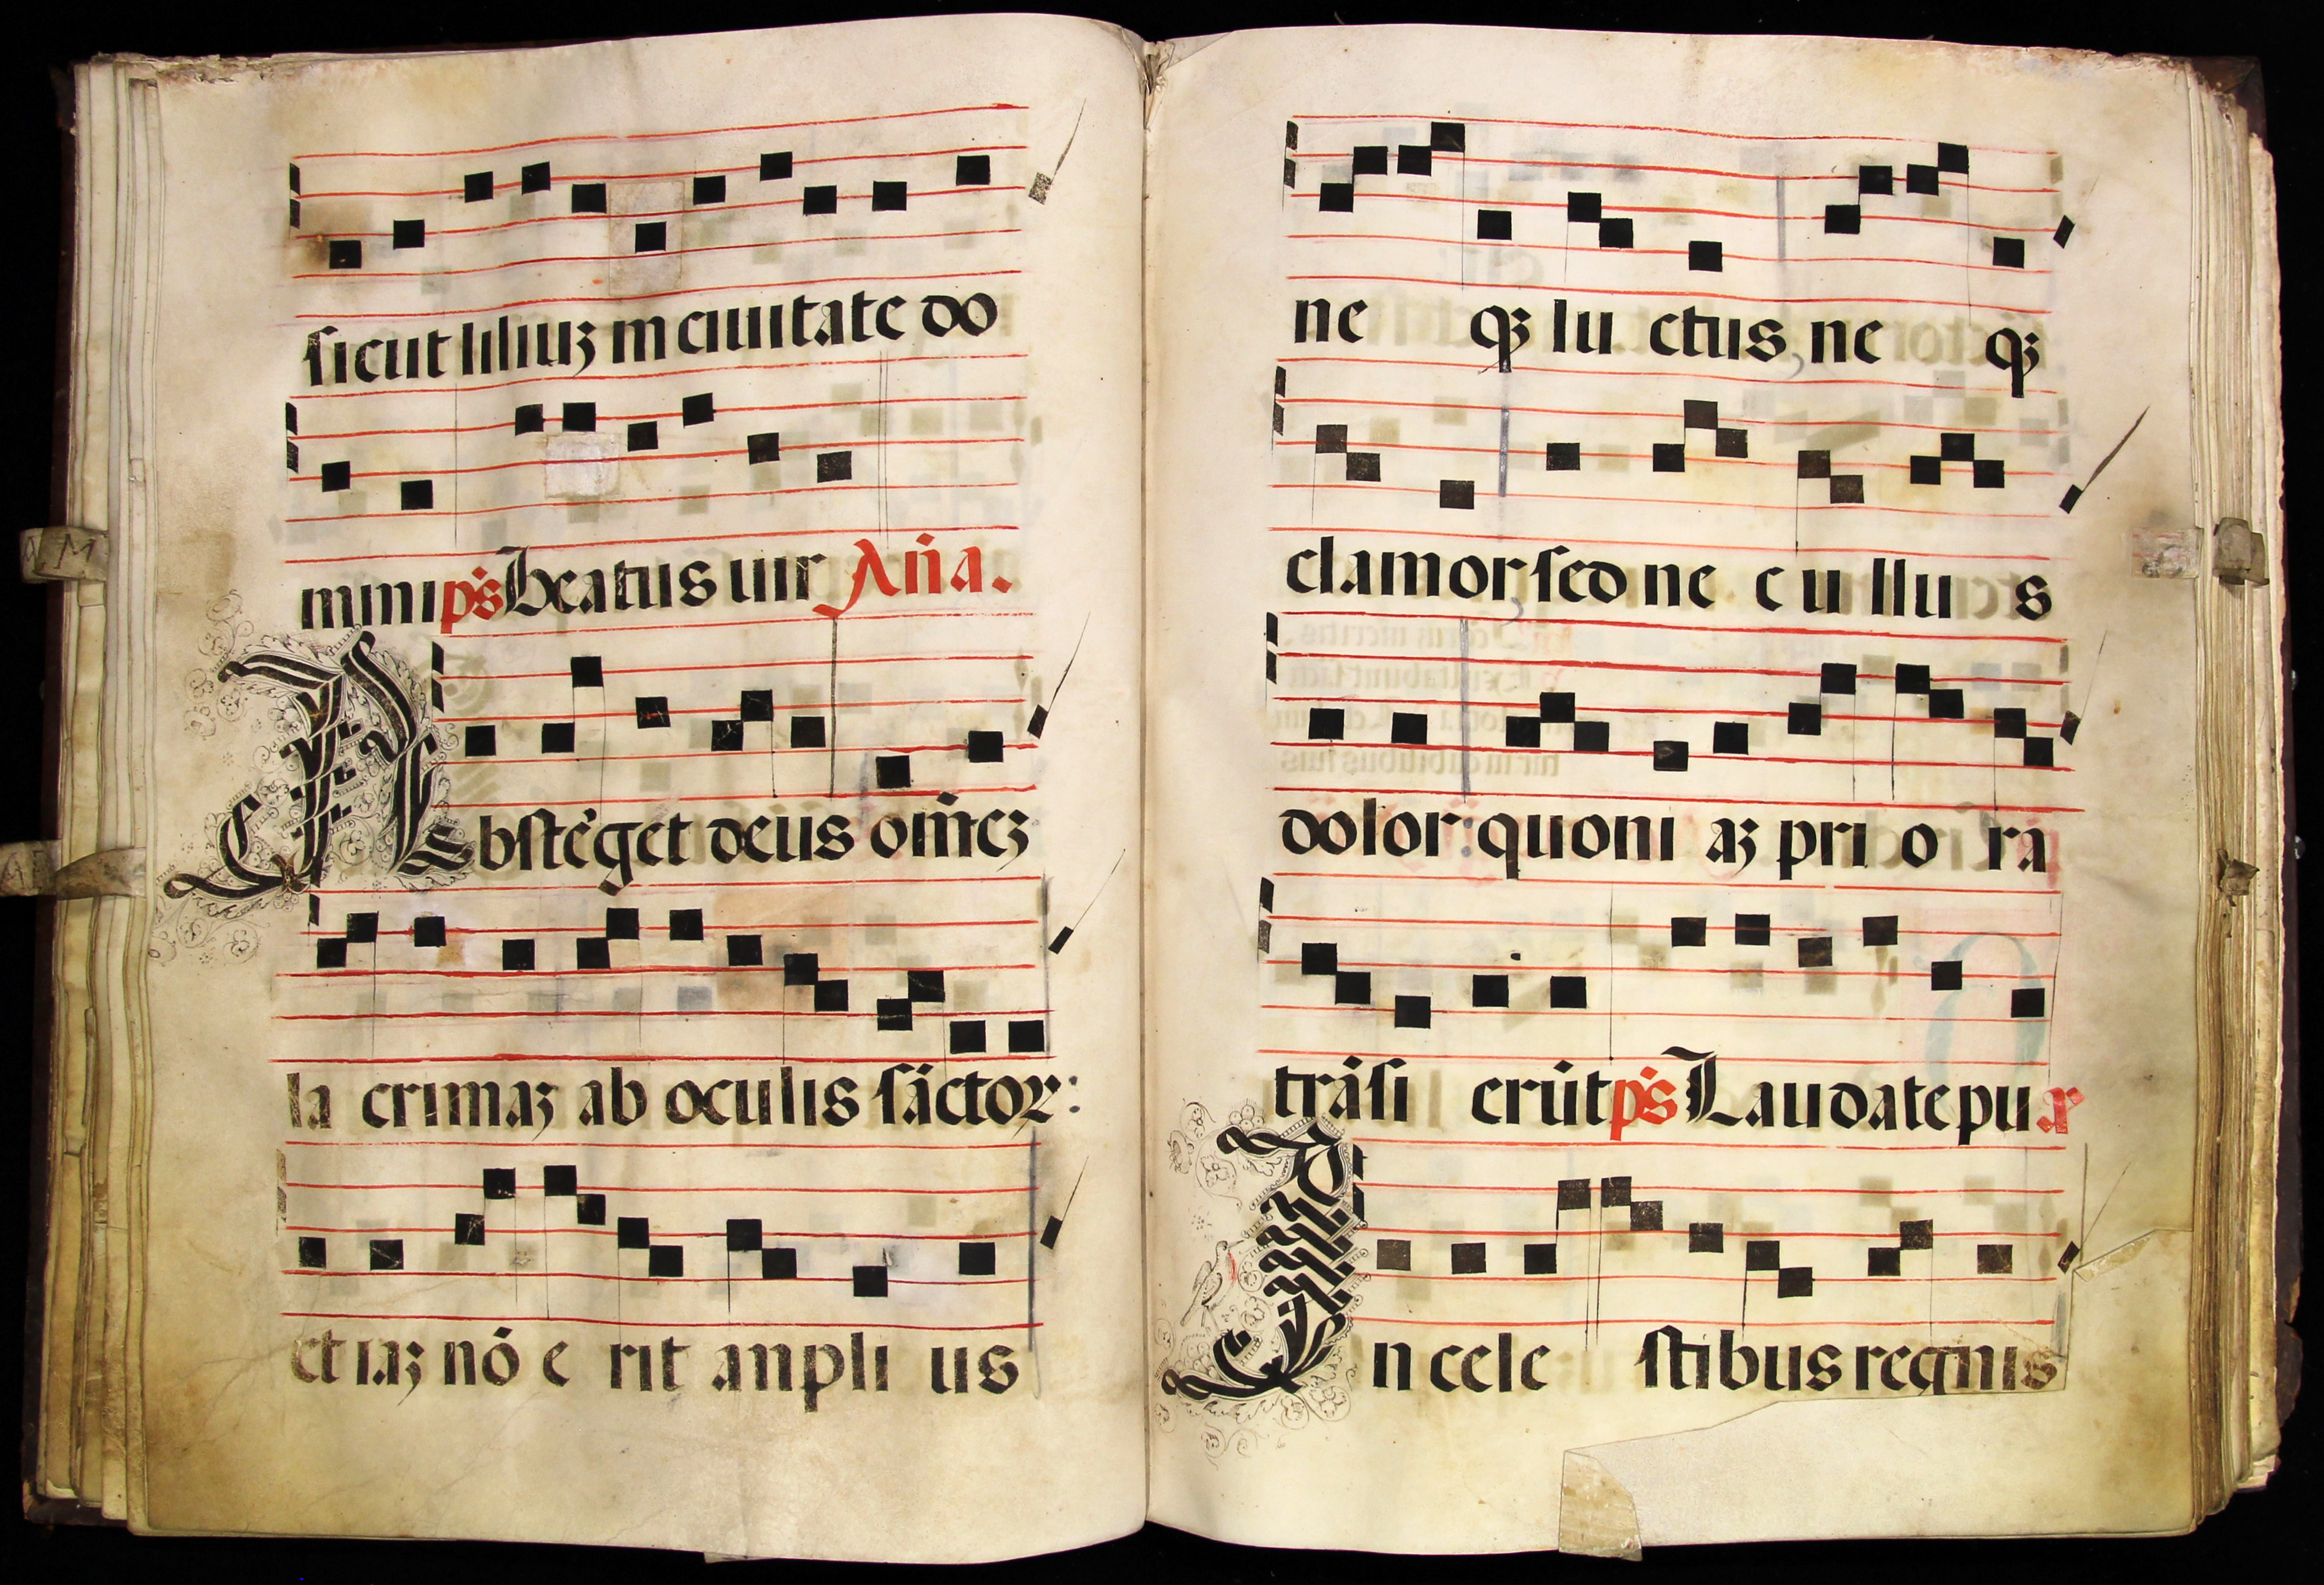 sicut liliuꝫ in ciuitate do
mini p̄s Beatus uir An̄a.
Absteget deus om̄eꝫ
la crimaꝫ ab oculis sāctor:
et iaꝫ nō e rit anpli us
ne qꝫ lu ctus ne qꝫ
clamor sed ne c u llu s
dolor quoni aꝫ pri o ra
trāsi erūt p̄s Laudate pu r
In cele stibus regnis